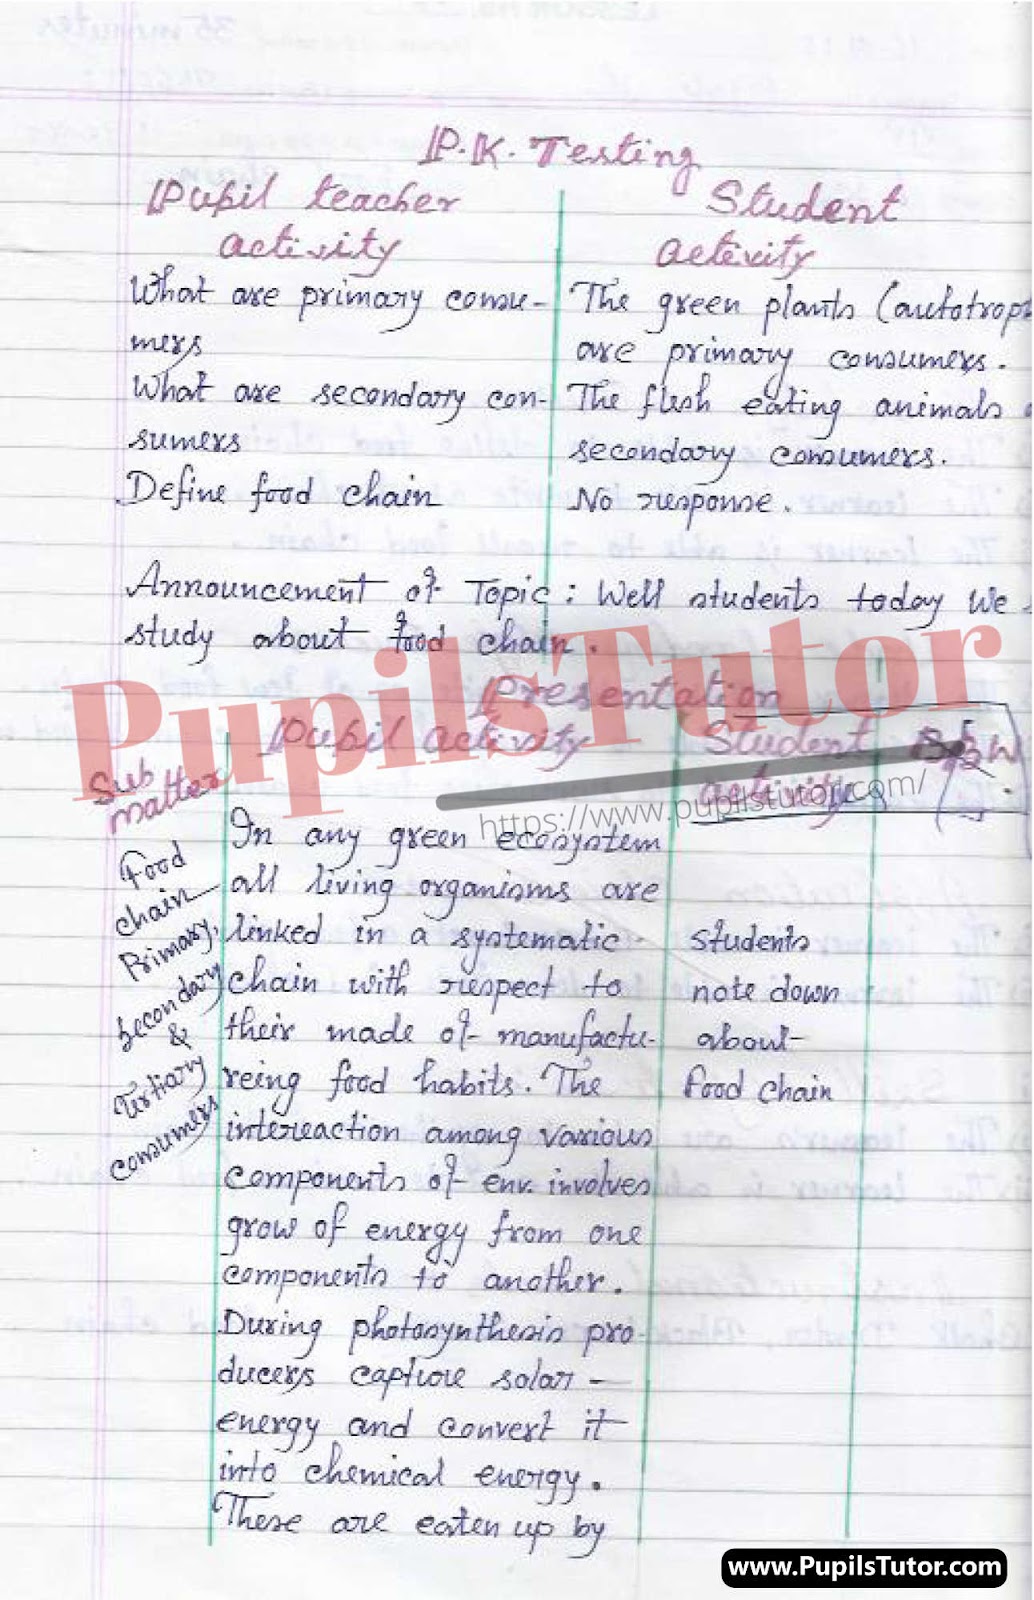 P.K. Testing
Pupil teacher activity
Student activity
What are primary consu-
mers
The green plants (autotrop
are primary consumers.
What are secondary con-
sumers
The flesh eating animals
secondary consumers.
Define food chain
No response.
Announcement of Topic : Well students today we
study about food chain.
PupilsTutor
https://www.pupilstutor.com/
Presentation
Sub matter
Pupil activity
Student activity
B.B.W
Food
chain
Primary,
secondary
&
Tertiary
consumers
In any green ecosystem
all living organisms are
linked in a systematic
chain with respect to
their made of manufactu-
reing food habits. The
intereaction among various
components of env. involves
grow of energy from one
components to another.
During photosynthesis pro-
ducers capture solar
energy and convert it
into chemical energy.
These are eaten up by
students
note down
about
food chain
www.PupilsTutor.com